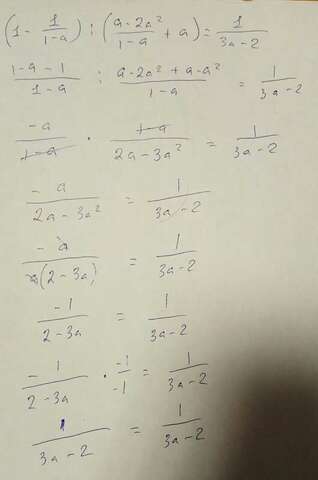 (1 - 1/(1-a)) : ((a-2a²)/(1-a) + a) = 1/(3a-2)
(1-a-1)/(1-a) : (a-2a²+a-a²)/(1-a) = 1/(3a-2)
-a/(1-a) · (1-a)/(2a-3a²) = 1/(3a-2)
-a/(2a-3a²) = 1/(3a-2)
-a/(a(2-3a)) = 1/(3a-2)
-1/(2-3a) = 1/(3a-2)
-1/(2-3a) · -1/-1 = 1/(3a-2)
1/(3a-2) = 1/(3a-2)